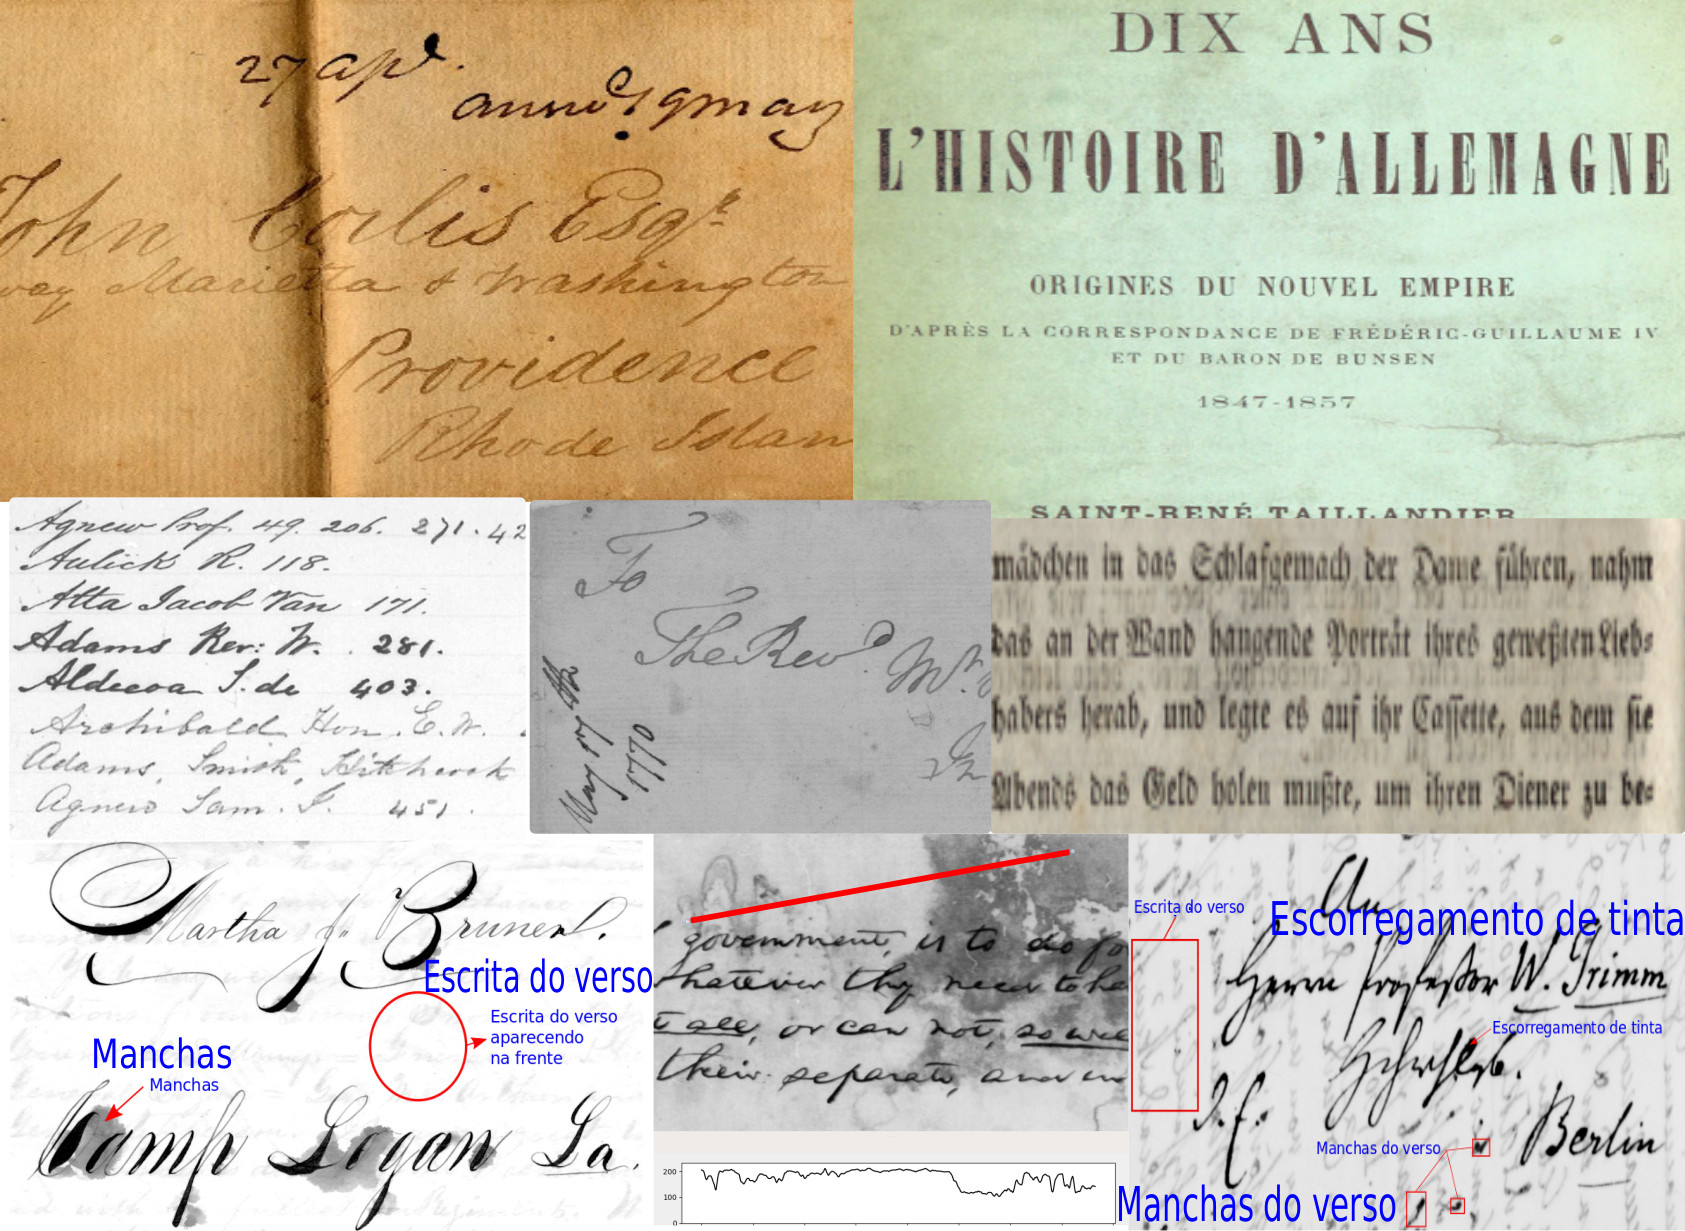 27 apl.
annd 9 may
John Corlis Esqr
way Marietta & Washington
Providence
Rhode Islan
DIX ANS
L'HISTOIRE D'ALLEMAGNE
ORIGINES DU NOUVEL EMPIRE
D'APRÈS LA CORRESPONDANCE DE FRÉDÉRIC-GUILLAUME IV
ET DU BARON DE BUNSEN
1847-1857
SAINT-RENÉ TAILLANDIER
Agnew Prof. 49. 206. 271. 42
Aulick R. 118.
Alta Jacob Van 171.
Adams Rev: W. 281.
Aldecoa J. de 403.
Archibald Hon. E. W.
Adams, Smith, Hitchcock
Agnew Sam. J. 451.
To
The Revd Mr.
1770
mädchen in das Schlafgemach der Dame führen, nahm
das an der Wand hangende Porträt ihres geweßten Lieb-
habers herab, und legte es auf ihr Cassette, aus dem sie
Abends das Geld holen mußte, um ihren Diener zu be-
Martha J. Bruner.
Escrita do verso
Escrita do verso
aparecendo
na frente
Manchas
Manchas
Camp Logan La.
government, is to do fo
whatever they need to ha
t all, or can not, so wel
their separate, and in
200
100
0
An
Escrita do verso
Escorregamento de tinta
Herrn Professor W. Grimm
Escorregamento de tinta
Berlin
Manchas do verso
Manchas do verso